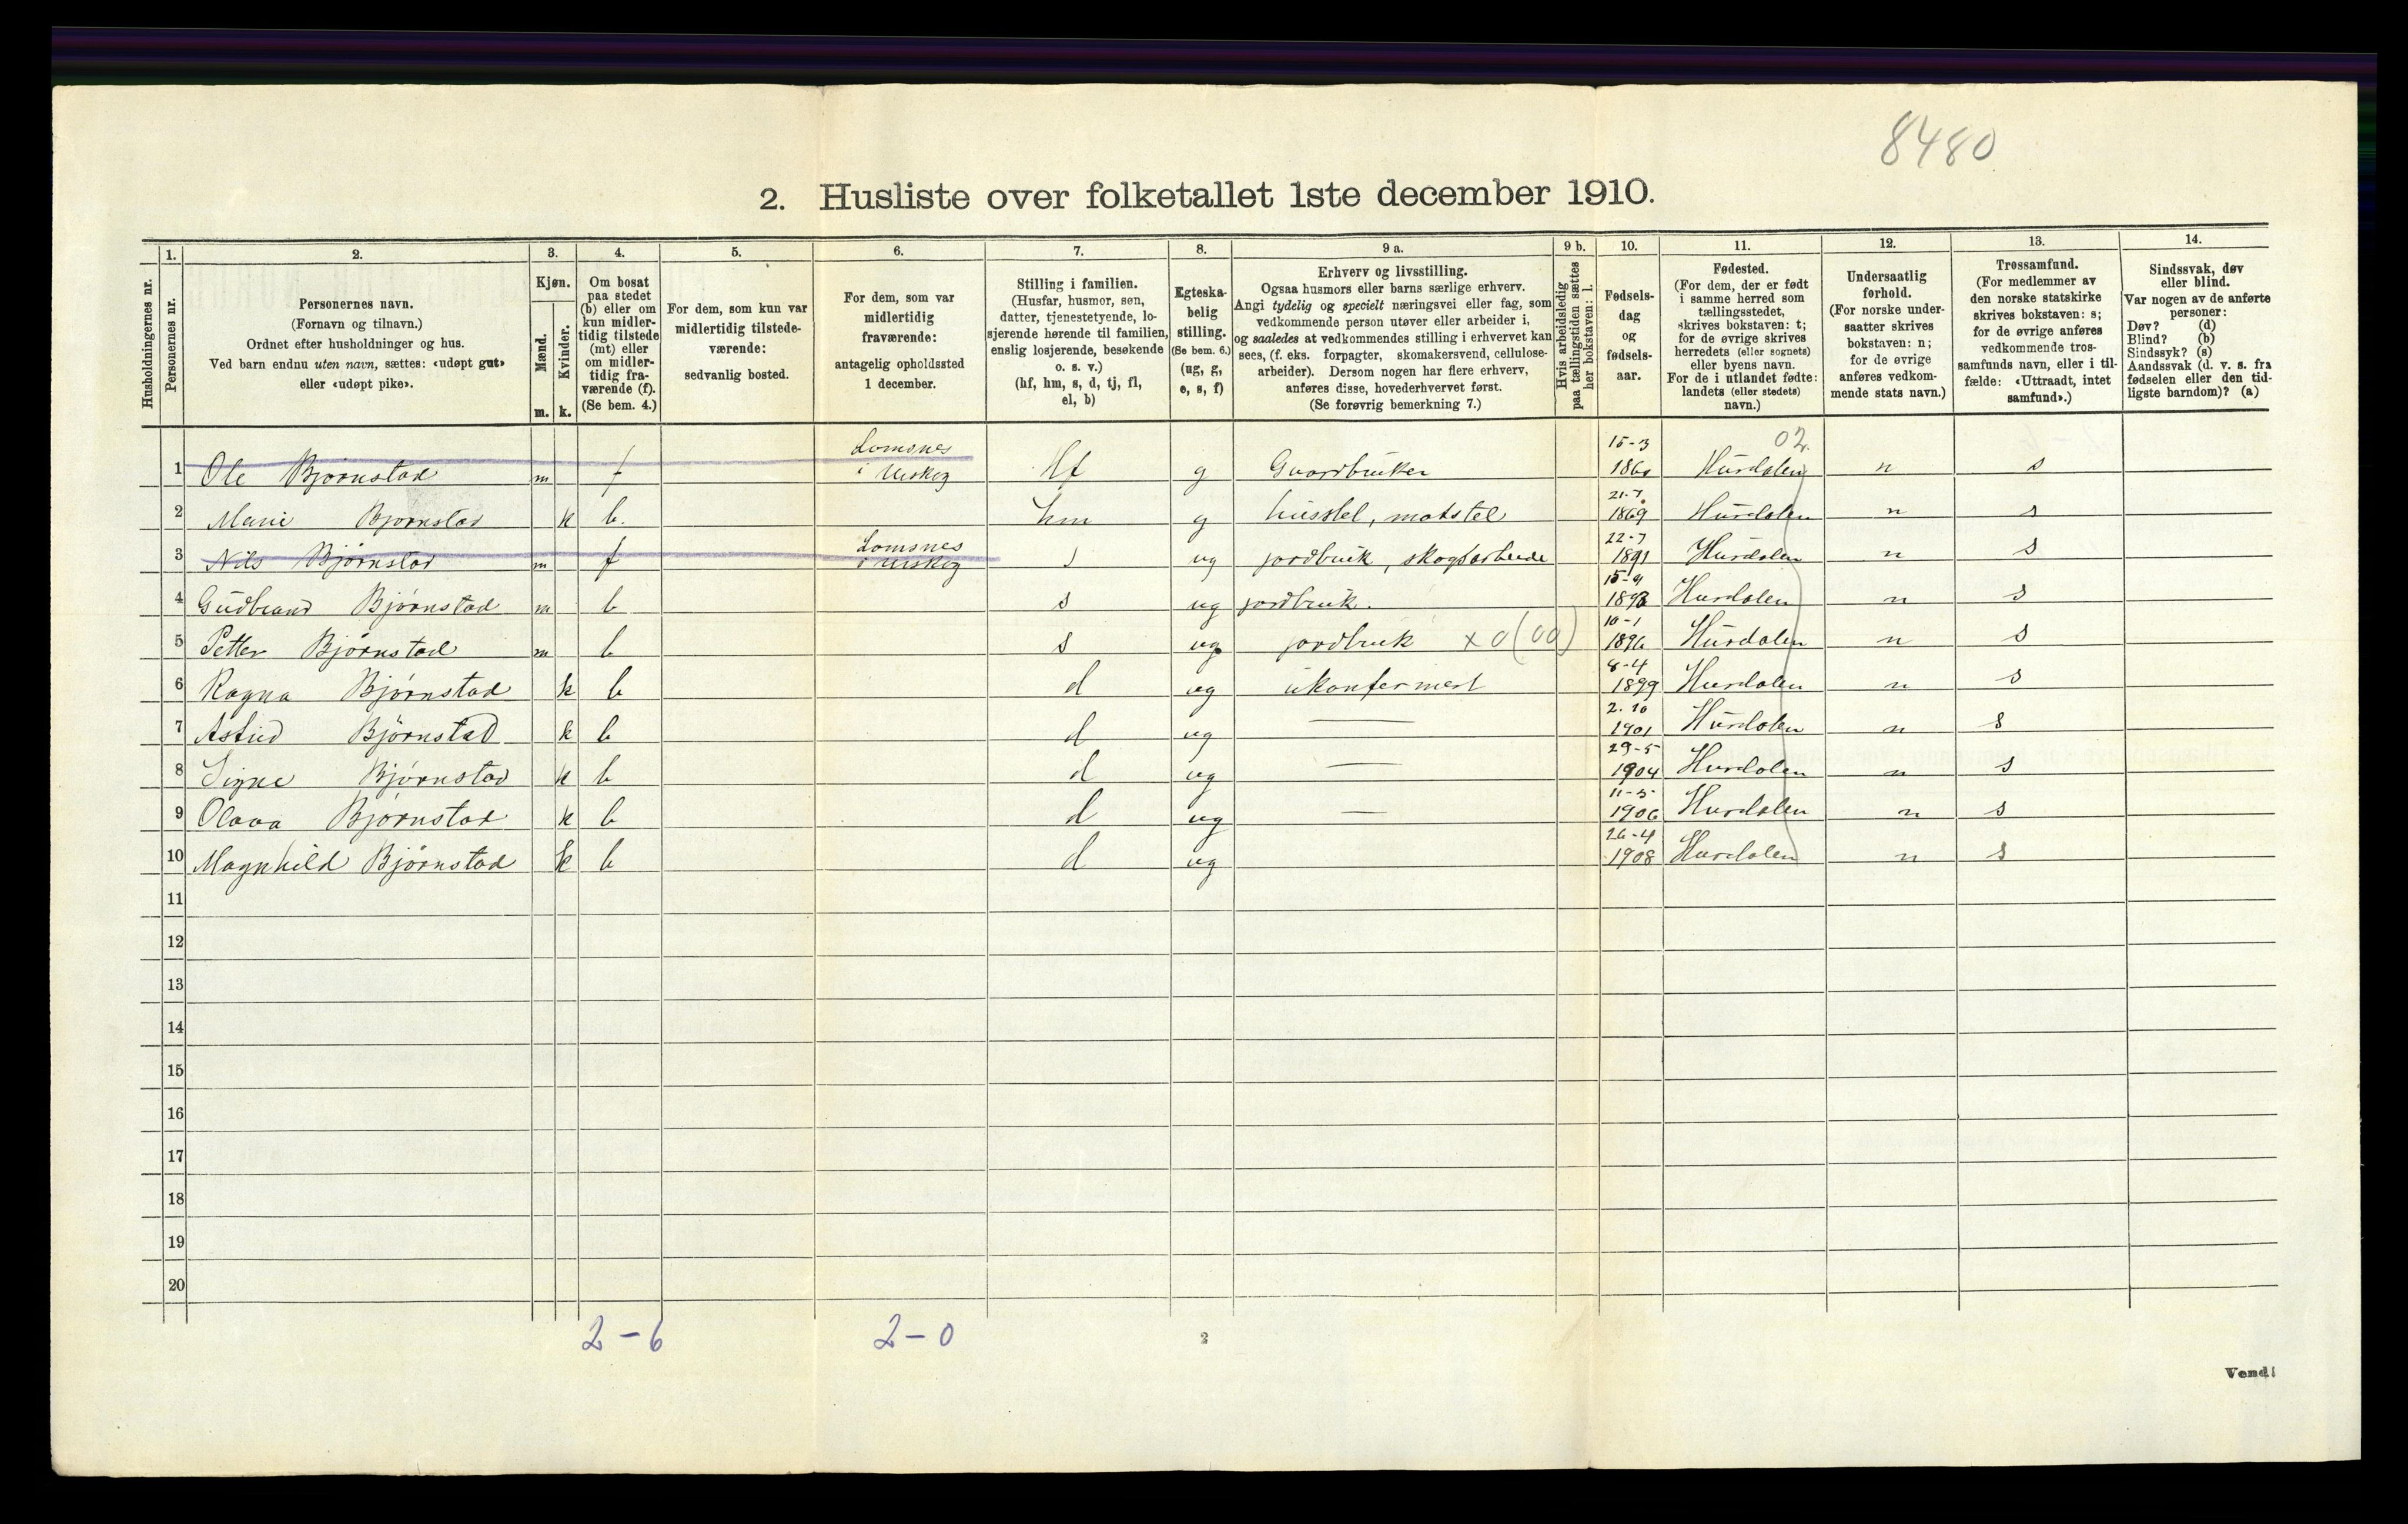 8480
2. Husliste over folketallet 1ste december 1910.
Husholdningernes nr.
1.
Personernes nr.
2.
Personernes navn.
(Fornavn og tilnavn.)
Ordnet efter husholdninger og hus.
Ved barn endnu uten navn, sættes: «udøpt gut»
eller «udøpt pike».
3.
Kjøn.
Mænd.
Kvinder.
m. k.
4.
Om bosat
paa stedet
(b) eller om
kun midler-
tidig tilstede
(mt) eller
om midler-
tidig fra-
værende (f).
(Se bem. 4.)
5.
For dem, som kun var
midlertidig tilstede-
værende:
sedvanlig bosted.
6.
For dem, som var
midlertidig
fraværende:
antagelig opholdssted
1 december.
7.
Stilling i familien.
(Husfar, husmor, søn,
datter, tjenestetyende, lo-
sjerende hørende til familien,
enslig losjerende, besøkende
o. s. v.)
(hf, hm, s, d, tj, fl,
el, b)
8.
Egteska-
belig
stilling.
(Se bem. 6.)
(ug, g,
e, s, f)
9 a.
Erhverv og livsstilling.
Ogsaa husmors eller barns særlige erhverv.
Angi tydelig og specielt næringsvei eller fag, som
vedkommende person utøver eller arbeider i,
og saaledes at vedkommendes stilling i erhvervet kan
sees, (f. eks. forpagter, skomakersvend, cellulose-
arbeider). Dersom nogen har flere erhverv,
anføres disse, hovederhvervet først.
(Se forøvrig bemerkning 7.)
9 b.
Hvis arbeidsledig
paa tællingstiden sættes
her bokstaven: l.
10.
Fødsels-
dag
og
fødsels-
aar.
11.
Fødested.
(For dem, der er født
i samme herred som
tællingsstedet,
skrives bokstaven: t;
for de øvrige skrives
herredets (eller sognets)
eller byens navn.
For de i utlandet fødte:
landets (eller stedets)
navn.)
12.
Undersaatlig
forhold.
(For norske under-
saatter skrives
bokstaven: n;
for de øvrige
anføres vedkom-
mende stats navn.)
13.
Trossamfund.
(For medlemmer av
den norske statskirke
skrives bokstaven: s;
for de øvrige anføres
vedkommende tros-
samfunds navn, eller i til-
fælde: «Uttraadt, intet
samfund».)
14.
Sindssvak, døv
eller blind.
Var nogen av de anførte
personer:
Døv? (d)
Blind? (b)
Sindssyk? (s)
Aandssvak (d. v. s. fra
fødselen eller den tid-
ligste barndom)? (a)
02.
1 Ole Bjørnstad m f Lomsnes i Urskog hf g Gaardbruker 15-3 Hurdalen n s
2 Marie Bjørnstad k b. hm g husstel, matstel 21-7 1869 Hurdalen n s
3 Nils Bjørnstad m f Lomsnes i Urskog s ug jordbruk, skogsarbeide 22-7 1891 Hurdalen n s
4 Gudbrand Bjørnstad m b s ug jordbruk. 15-9 1893 Hurdalen n s
5 Petter Bjørnstad m b s ug jordbruk x0(00) 10-1 1896 Hurdalen n s
6 Ragna Bjørnstad k b d ug ukonfermert 8-4 1899 Hurdalen n s
7 Astrid Bjørnstad k b d ug — 2-10 1901 Hurdalen n s
8 Signe Bjørnstad k b d ug — 29-5 1904 Hurdalen n s
9 Olava Bjørnstad k b d ug — 11-5 1906 Hurdalen n s
10 Magnhild Bjørnstad k b d ug 26-4 1908 Hurdalen n s
11
12
13
14
15
16
17
18
19
20
2-6 2-0
2
Vend!